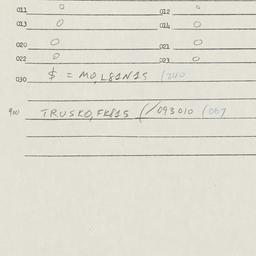 011 0 012 0
013 0 014 0
020 0 021 0
022 0 023 0
030 $ = MO, L81N15 1240
900 TRUSKO, FK815 (/093010 1067